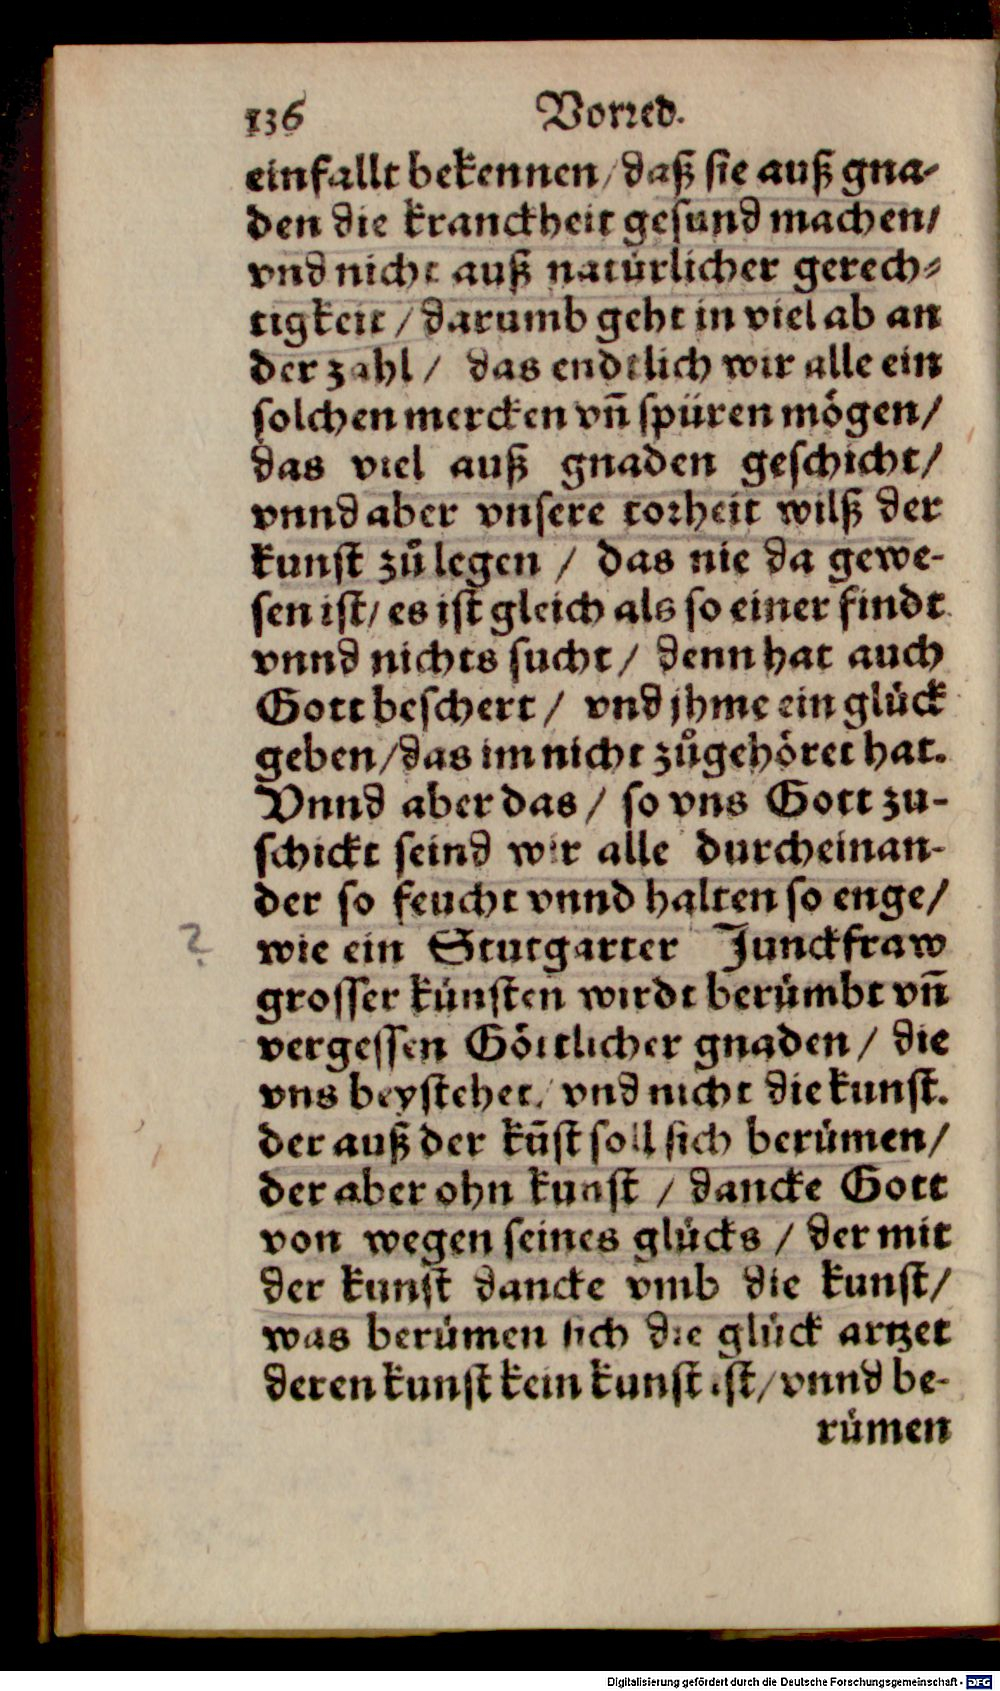 136 Vorred.
einfallt bekennen/ daß sie auß gna-
den die kranckheit gesund machen/
vnd nicht auß natürlicher gerech-
tigkeit / darumb geht in viel ab an
der zahl / das endtlich wir alle ein
solchen mercken vñ spüren mögen/
das viel auß gnaden geschicht/
vnnd aber vnsere torheit wilß der
kunst zů legen / das nie da gewe-
sen ist/ es ist gleich als so einer findt
vnnd nichts sucht / denn hat auch
Gott beschert / vnd jhme ein glück
geben/das im nicht zůgehöret hat.
Vnnd aber das / so vns Gott zu-
schickt seind wir alle durcheinan-
der so feucht vnnd halten so enge/
wie ein Stutgarter Junckfraw
grosser künsten wirdt berümbt vñ
vergessen Göttlicher gnaden / die
vns beystehet/ vnd nicht die kunst.
der auß der kūst soll sich berümen/
der aber ohn kunst / dancke Gott
von wegen seines glücks / der mit
der kunst dancke vmb die kunst/
was berümen sich die glück artzet
deren kunst kein kunst ist/ vnnd be-
rümen
?
Digitalisierung gefördert durch die Deutsche Forschungsgemeinschaft - DFG